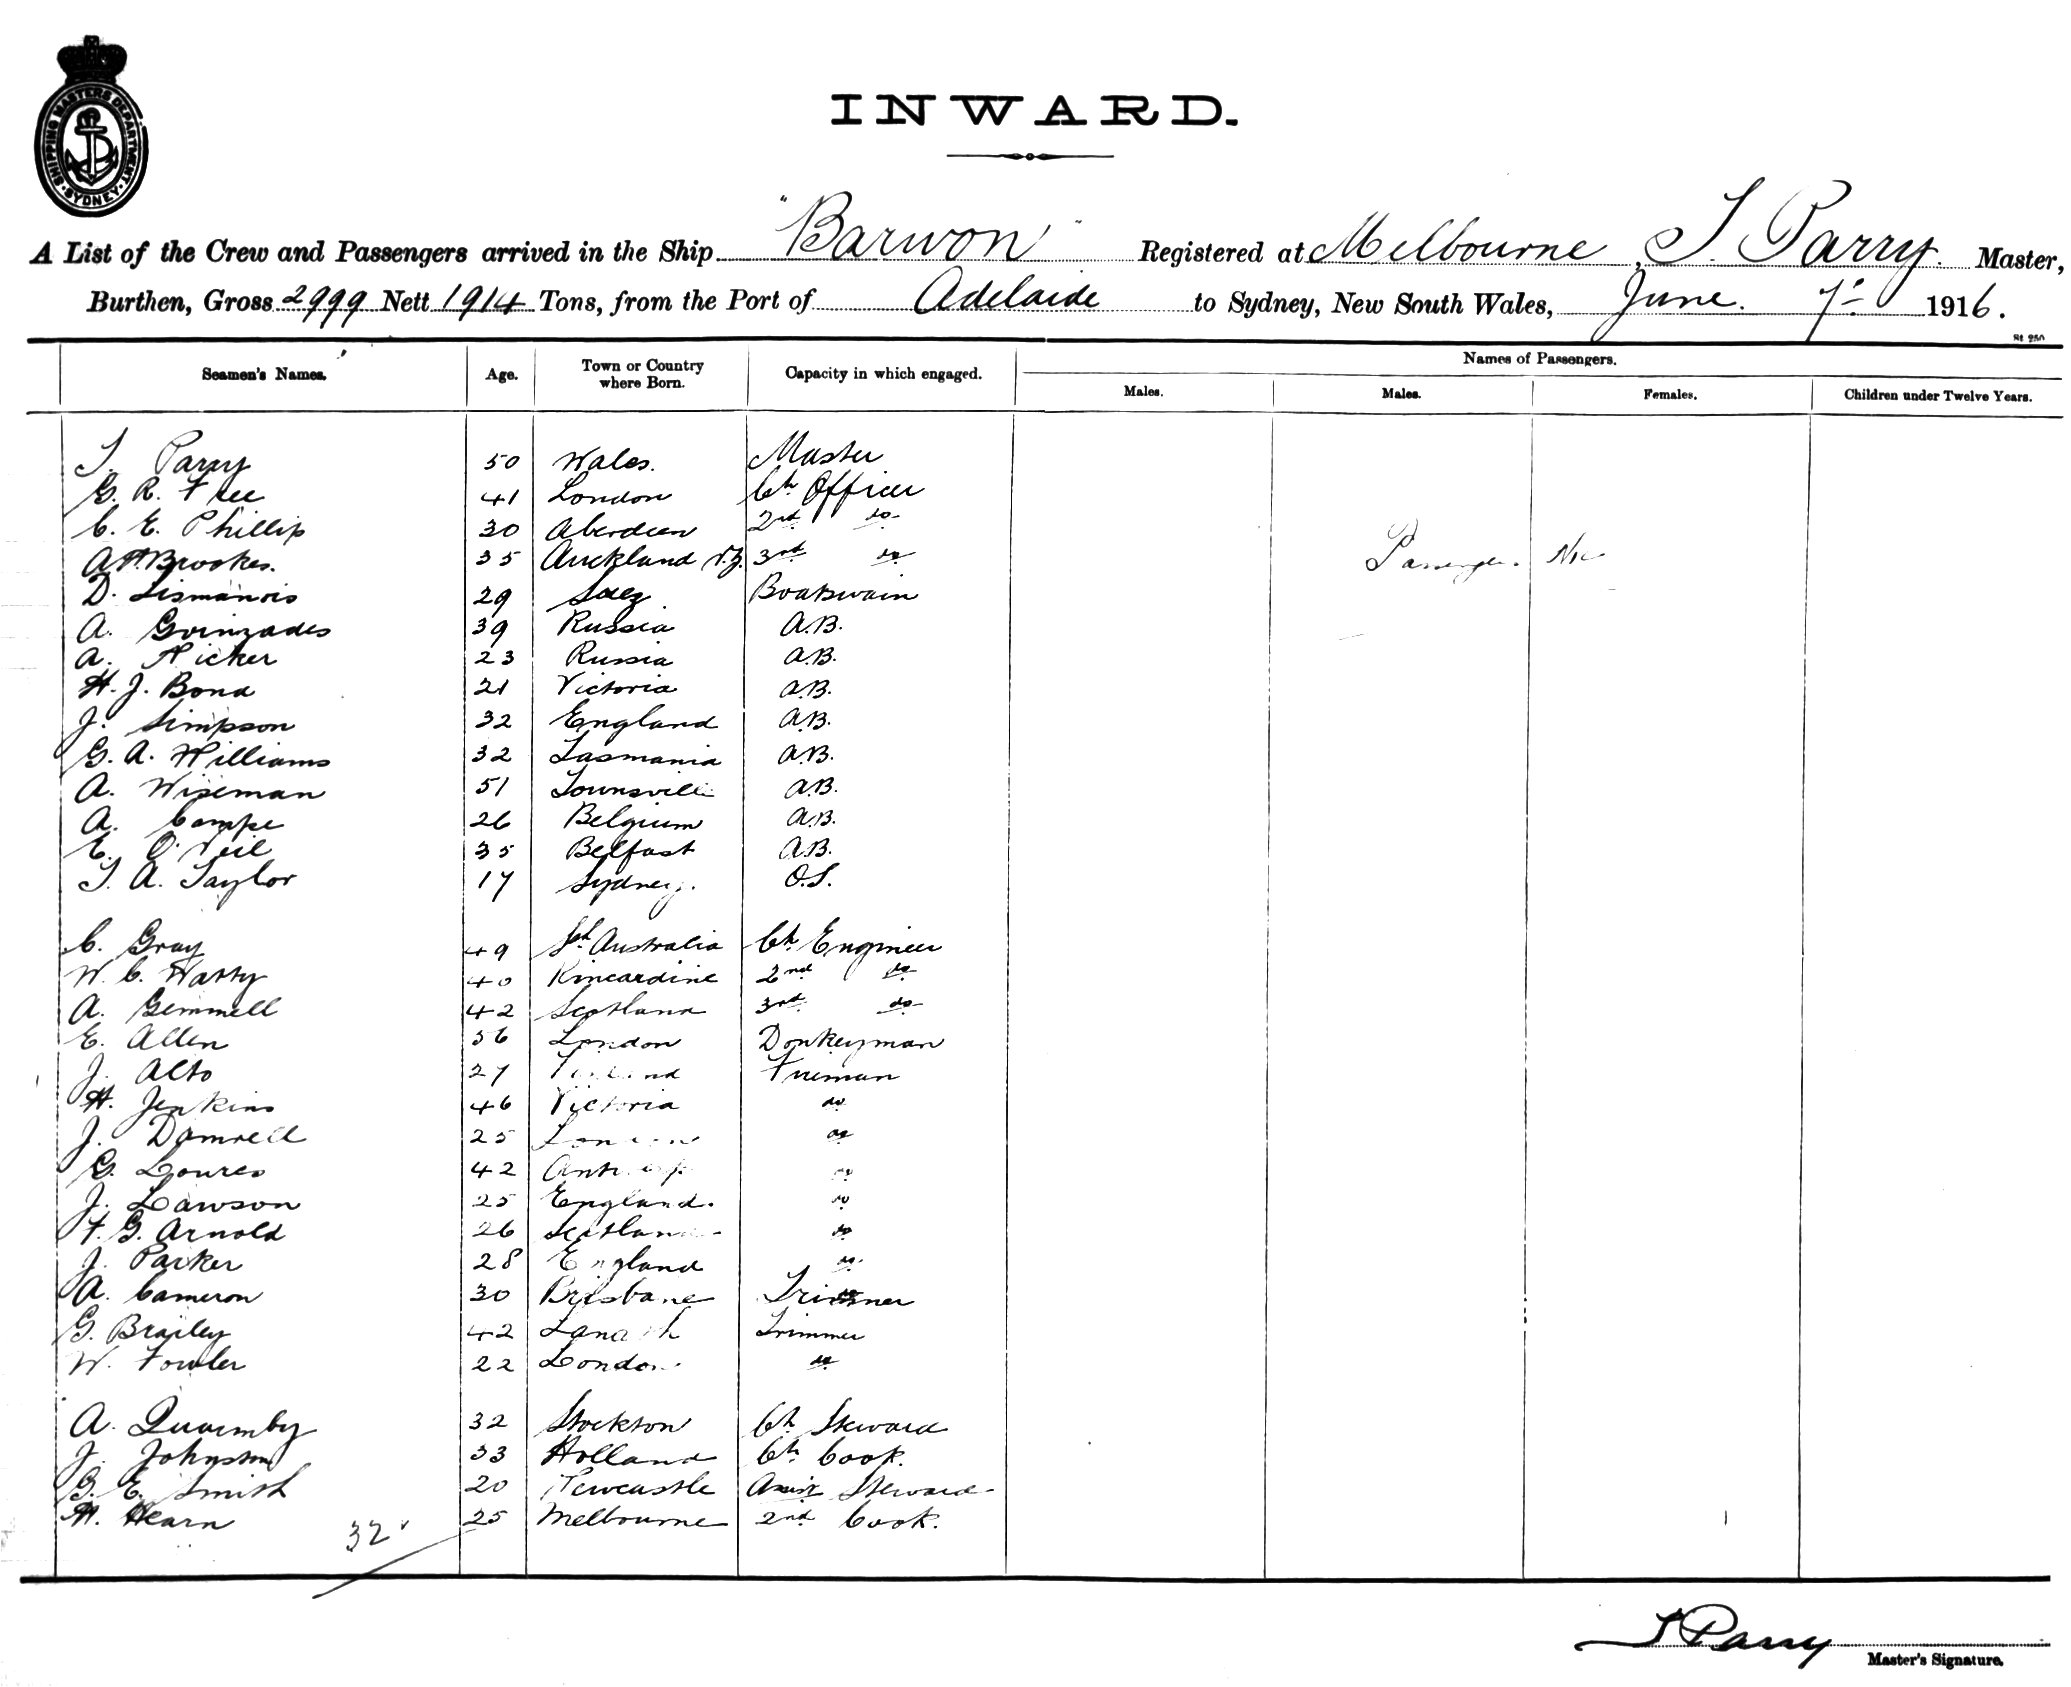 SHIPPING MASTERS DEPARTMENT. SYDNEY
INWARD.
A List of the Crew and Passengers arrived in the Ship "Barwon" Registered at Melbourne, T. Parry. Master,
Burthen, Gross 2999 Nett 1914 Tons, from the Port of Adelaide to Sydney, New South Wales, June. 7th 1916.
St 250
Seamen's Names. Age. Town or Country where Born. Capacity in which engaged. Names of Passengers.
Males. Males. Females. Children under Twelve Years.
T. Parry 50 Wales. Master
G. R. Free 41 London Ch. Officer
C. E. Phillip 30 Aberdeen 2nd do
A. H. Brookes. 35 Auckland N.Z. 3rd do Passengers. Nil
D. Lismanois 29 Boatswain
A. 39 Russia A.B.
A. Nicker 23 Russia A.B.
H. J. Bond 21 Victoria A.B.
J. Simpson 32 England A.B.
G. A. Williams 32 Tasmania A.B.
A. Wiseman 51 Townsville A.B.
A. Campe 26 Belgium A.B.
E. O'Neil 35 Belfast A.B.
T. A. Taylor 17 Sydney. O.S.
C. Gray 49 Sth Australia Ch. Engineer
W. C. Watty 40 Kincardine 2nd do
A. Gemmell 42 Scotland 3rd do
E. Allen 56 London Donkeyman
J. Alto 27 Finland Fireman
H. Jenkins 46 Victoria do
J. Damrell 25 London do
G. Loures 42 Antwerp do
J. Lawson 25 England. do
F. G. Arnold 26 Scotland do
J. Parker 28 England do
A. Cameron 30 Brisbane Trimmer
G. Brailey 42 Lanark Trimmer
W. Fowler 22 London do
A. Quarmby 32 Stockton Ch. Steward
J. Johnston 33 Holland Ch. Cook.
G. E. Smith 20 Newcastle Assist Steward
H. Hearn 25 Melbourne 2nd Cook.
32
T Parry
Master's Signature.